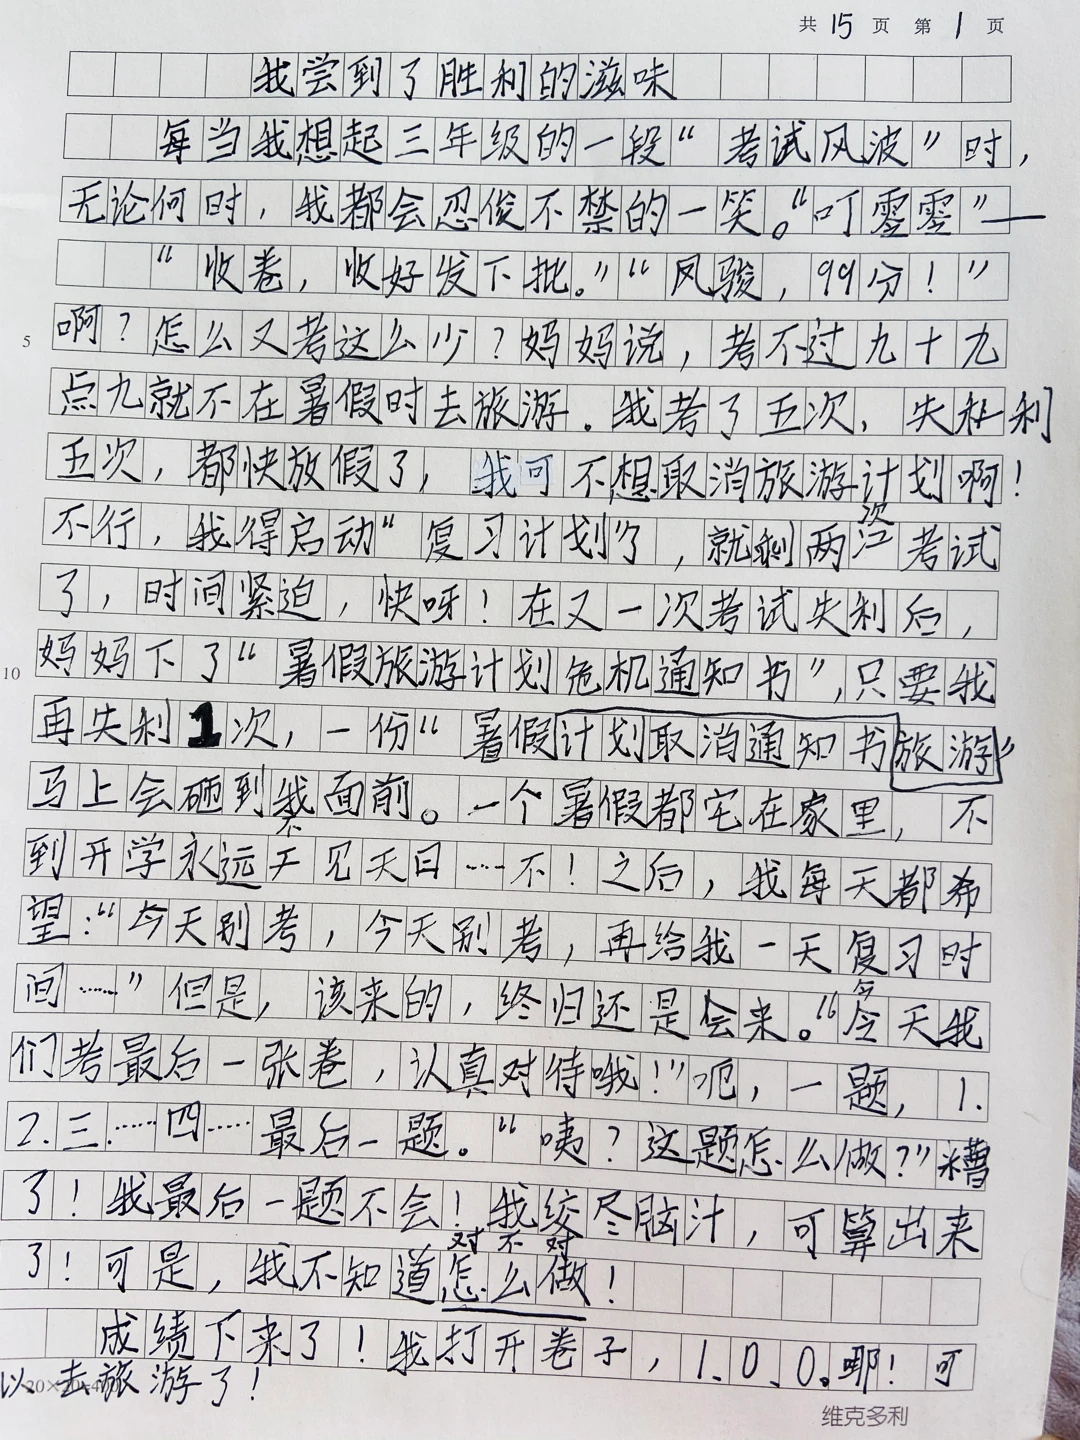 共15页 第1页
我尝到了胜利的滋味
每当我想起三年级的一段“考试风波”时，
无论何时，我都会忍俊不禁的一笑。“叮零零”——
“收卷，收好发下批。”“凤骏，99分！”
5
啊？怎么又考这么少？妈妈说，考不过九十九
点九就不在暑假时去旅游．我考了五次，失利
五次，都快放假了，我可不想取消旅游计划啊！
次
不行，我得启动“复习计划”了，就剩两考试
了，时间紧迫，快呀！在又一次考试失利后，
10
妈妈下了“暑假旅游计划危机通知书”，只要我
再失利1次，一份“暑假计划取消通知书旅游”
马上会砸到我面前。一个暑假都宅在家里，不
不
到开学永远见天日……不！之后，我每天都希
望：“今天别考，今天别考，再给我一天复习时
间……”但是，该来的，终归还是会来。“今天我
们考最后一张卷，认真对待哦！”呃，一题，1.
2.三……四……最后一题。“咦？这题怎么做？”糟
了！我最后一题不会！我绞尽脑汁，可算出来
对不对
了！可是，我不知道怎么做！
成绩下来了！我打开卷子，1.0.0.哪！可
以去旅游了！
20×20=400
维克多利